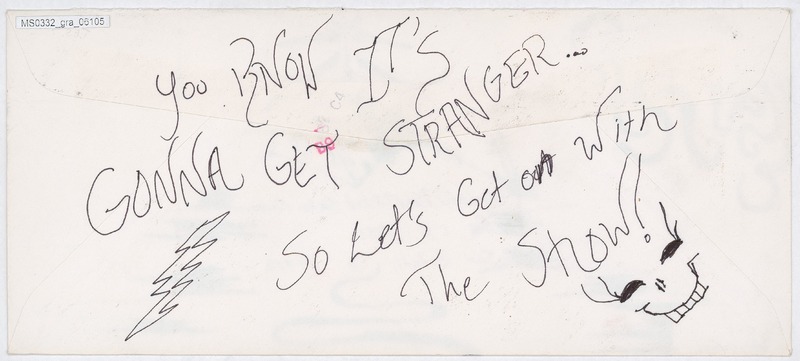 MS0332_gra_06105
You KNOW IT'S
GONNA GET STRANGER...
So Let's Get on With
The Show!